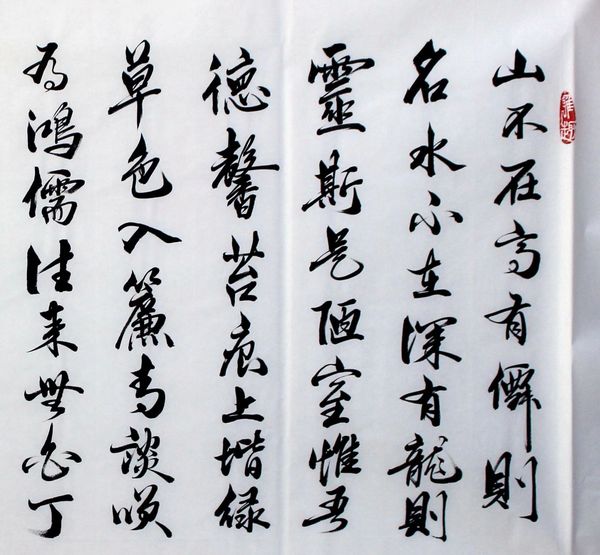 山不在高有僊則
名水不在深有龍則
靈斯是陋室惟吾
德馨苔痕上堦緑
草色入簾青談咲
為鴻儒往来無白丁
雅趣